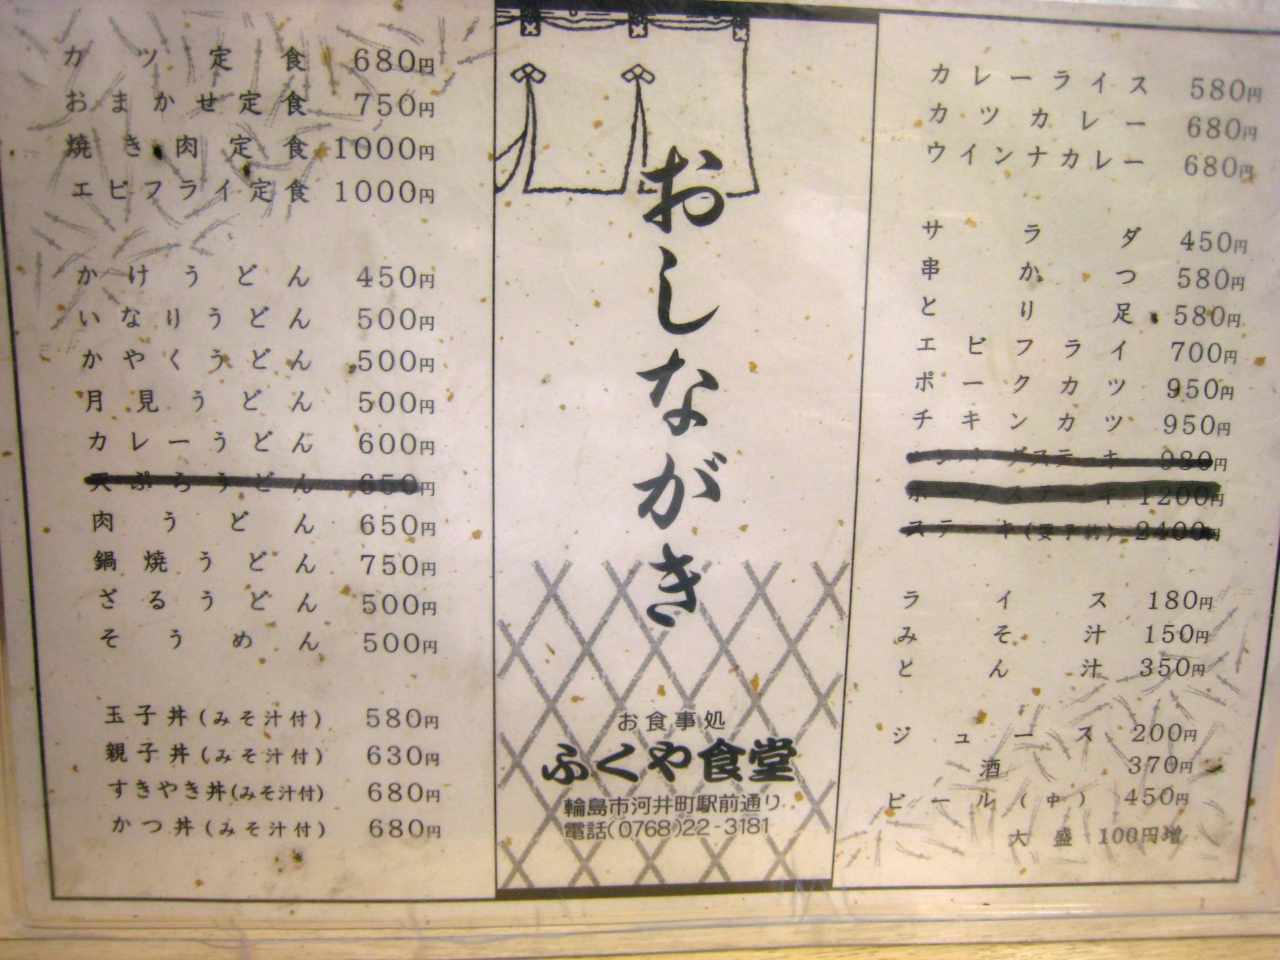 カツ定食 680円
おまかせ定食 750円
焼き肉定食 1000円
エビフライ定食 1000円
かけうどん 450円
いなりうどん 500円
かやくうどん 500円
月見うどん 500円
カレーうどん 600円
天ぷらうどん 650円
肉うどん 650円
鍋焼うどん 750円
ざるうどん 500円
そうめん 500円
玉子丼(みそ汁付) 580円
親子丼(みそ汁付) 630円
すきやき丼(みそ汁付) 680円
かつ丼(みそ汁付) 680円
おしながき
お食事処
ふくや食堂
輪島市河井町駅前通り
電話(0768)22-3181
カレーライス 580円
カツカレー 680円
ウインナカレー 680円
サラダ 450円
串かつ 580円
とり足 580円
エビフライ 700円
ポークカツ 950円
チキンカツ 950円
ハンバーグステーキ 980円
ポークステーキ 1200円
ステーキ(要予約) 2400円
ライス 180円
みそ汁 150円
とん汁 350円
ジュース 200円
酒 370円
ビール(中) 450円
大盛 100円増